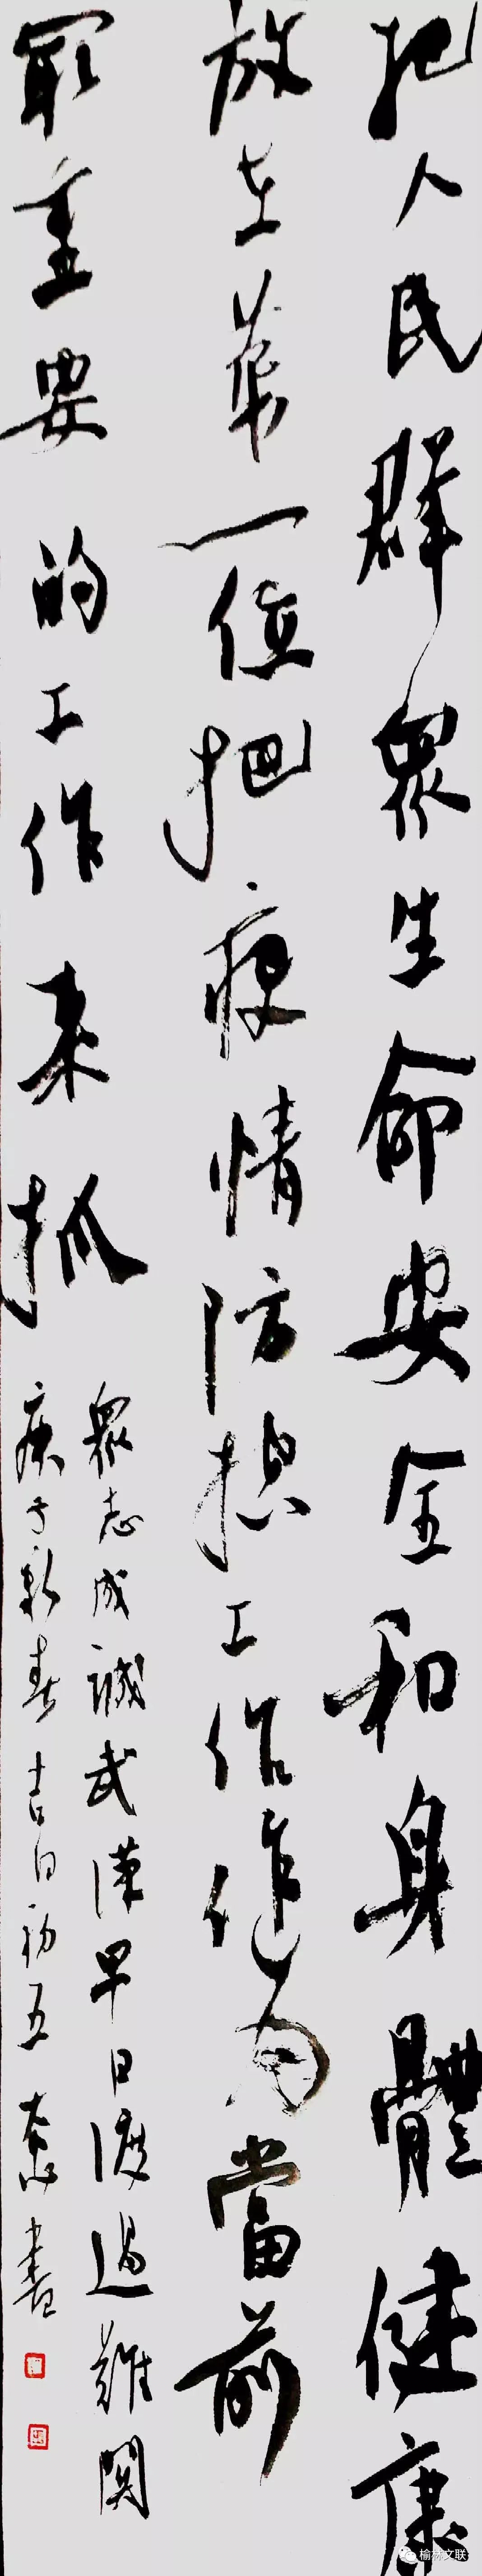 把人民群眾生命安全和身體健康
放在第一位把疫情防控工作作為當前
最重要的工作来抓
眾志成誠武漢早日渡過難關
庚子新春吉日初五書
榆林文联